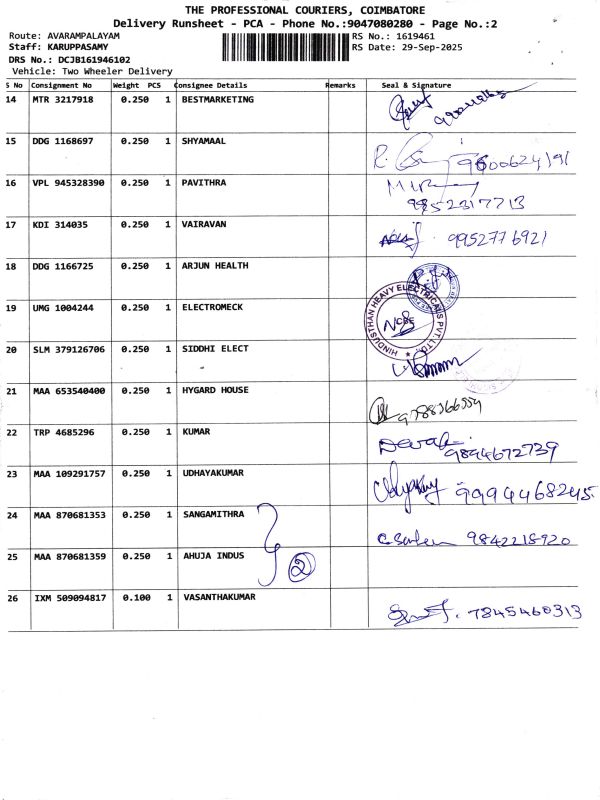 THE PROFESSIONAL COURIERS, COIMBATORE
Delivery Runsheet - PCA - Phone No.:9047080280 - Page No.:2
Route: AVARAMPALAYAM RS No.: 1619461
Staff: KARUPPASAMY RS Date: 29-Sep-2025
DRS No.: DCJB161946102
Vehicle: Two Wheeler Delivery
S No Consignment No Weight PCS Consignee Details Remarks Seal & Signature
14 MTR 3217918 0.250 1 BESTMARKETING
15 DDG 1168697 0.250 1 SHYAMAAL 9600624191
16 VPL 945328390 0.250 1 PAVITHRA
9952317713
17 KDI 314035 0.250 1 VAIRAVAN 9952776921
18 DDG 1166725 0.250 1 ARJUN HEALTH
19 UMG 1004244 0.250 1 ELECTROMECK
HINDUSTHAN HEAVY ELECTRICALS PVT. LTD.
CBE
20 SLM 379126706 0.250 1 SIDDHI ELECT
21 MAA 653540400 0.250 1 HYGARD HOUSE
22 TRP 4685296 0.250 1 KUMAR
9894672739
23 MAA 109291757 0.250 1 UDHAYAKUMAR 9994468245
24 MAA 870681353 0.250 1 SANGAMITHRA
9842218920
25 MAA 870681359 0.250 1 AHUJA INDUS 2
26 IXM 509094817 0.100 1 VASANTHAKUMAR
7845460313